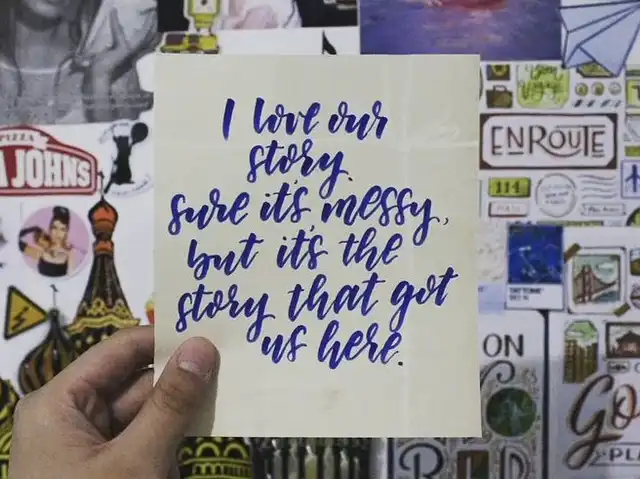 I love our
story.
Sure it's messy,
but it's the
story that got
us here.
PIZZA
A JOHN'S
EN ROUTE
114
ON
Go
PLA